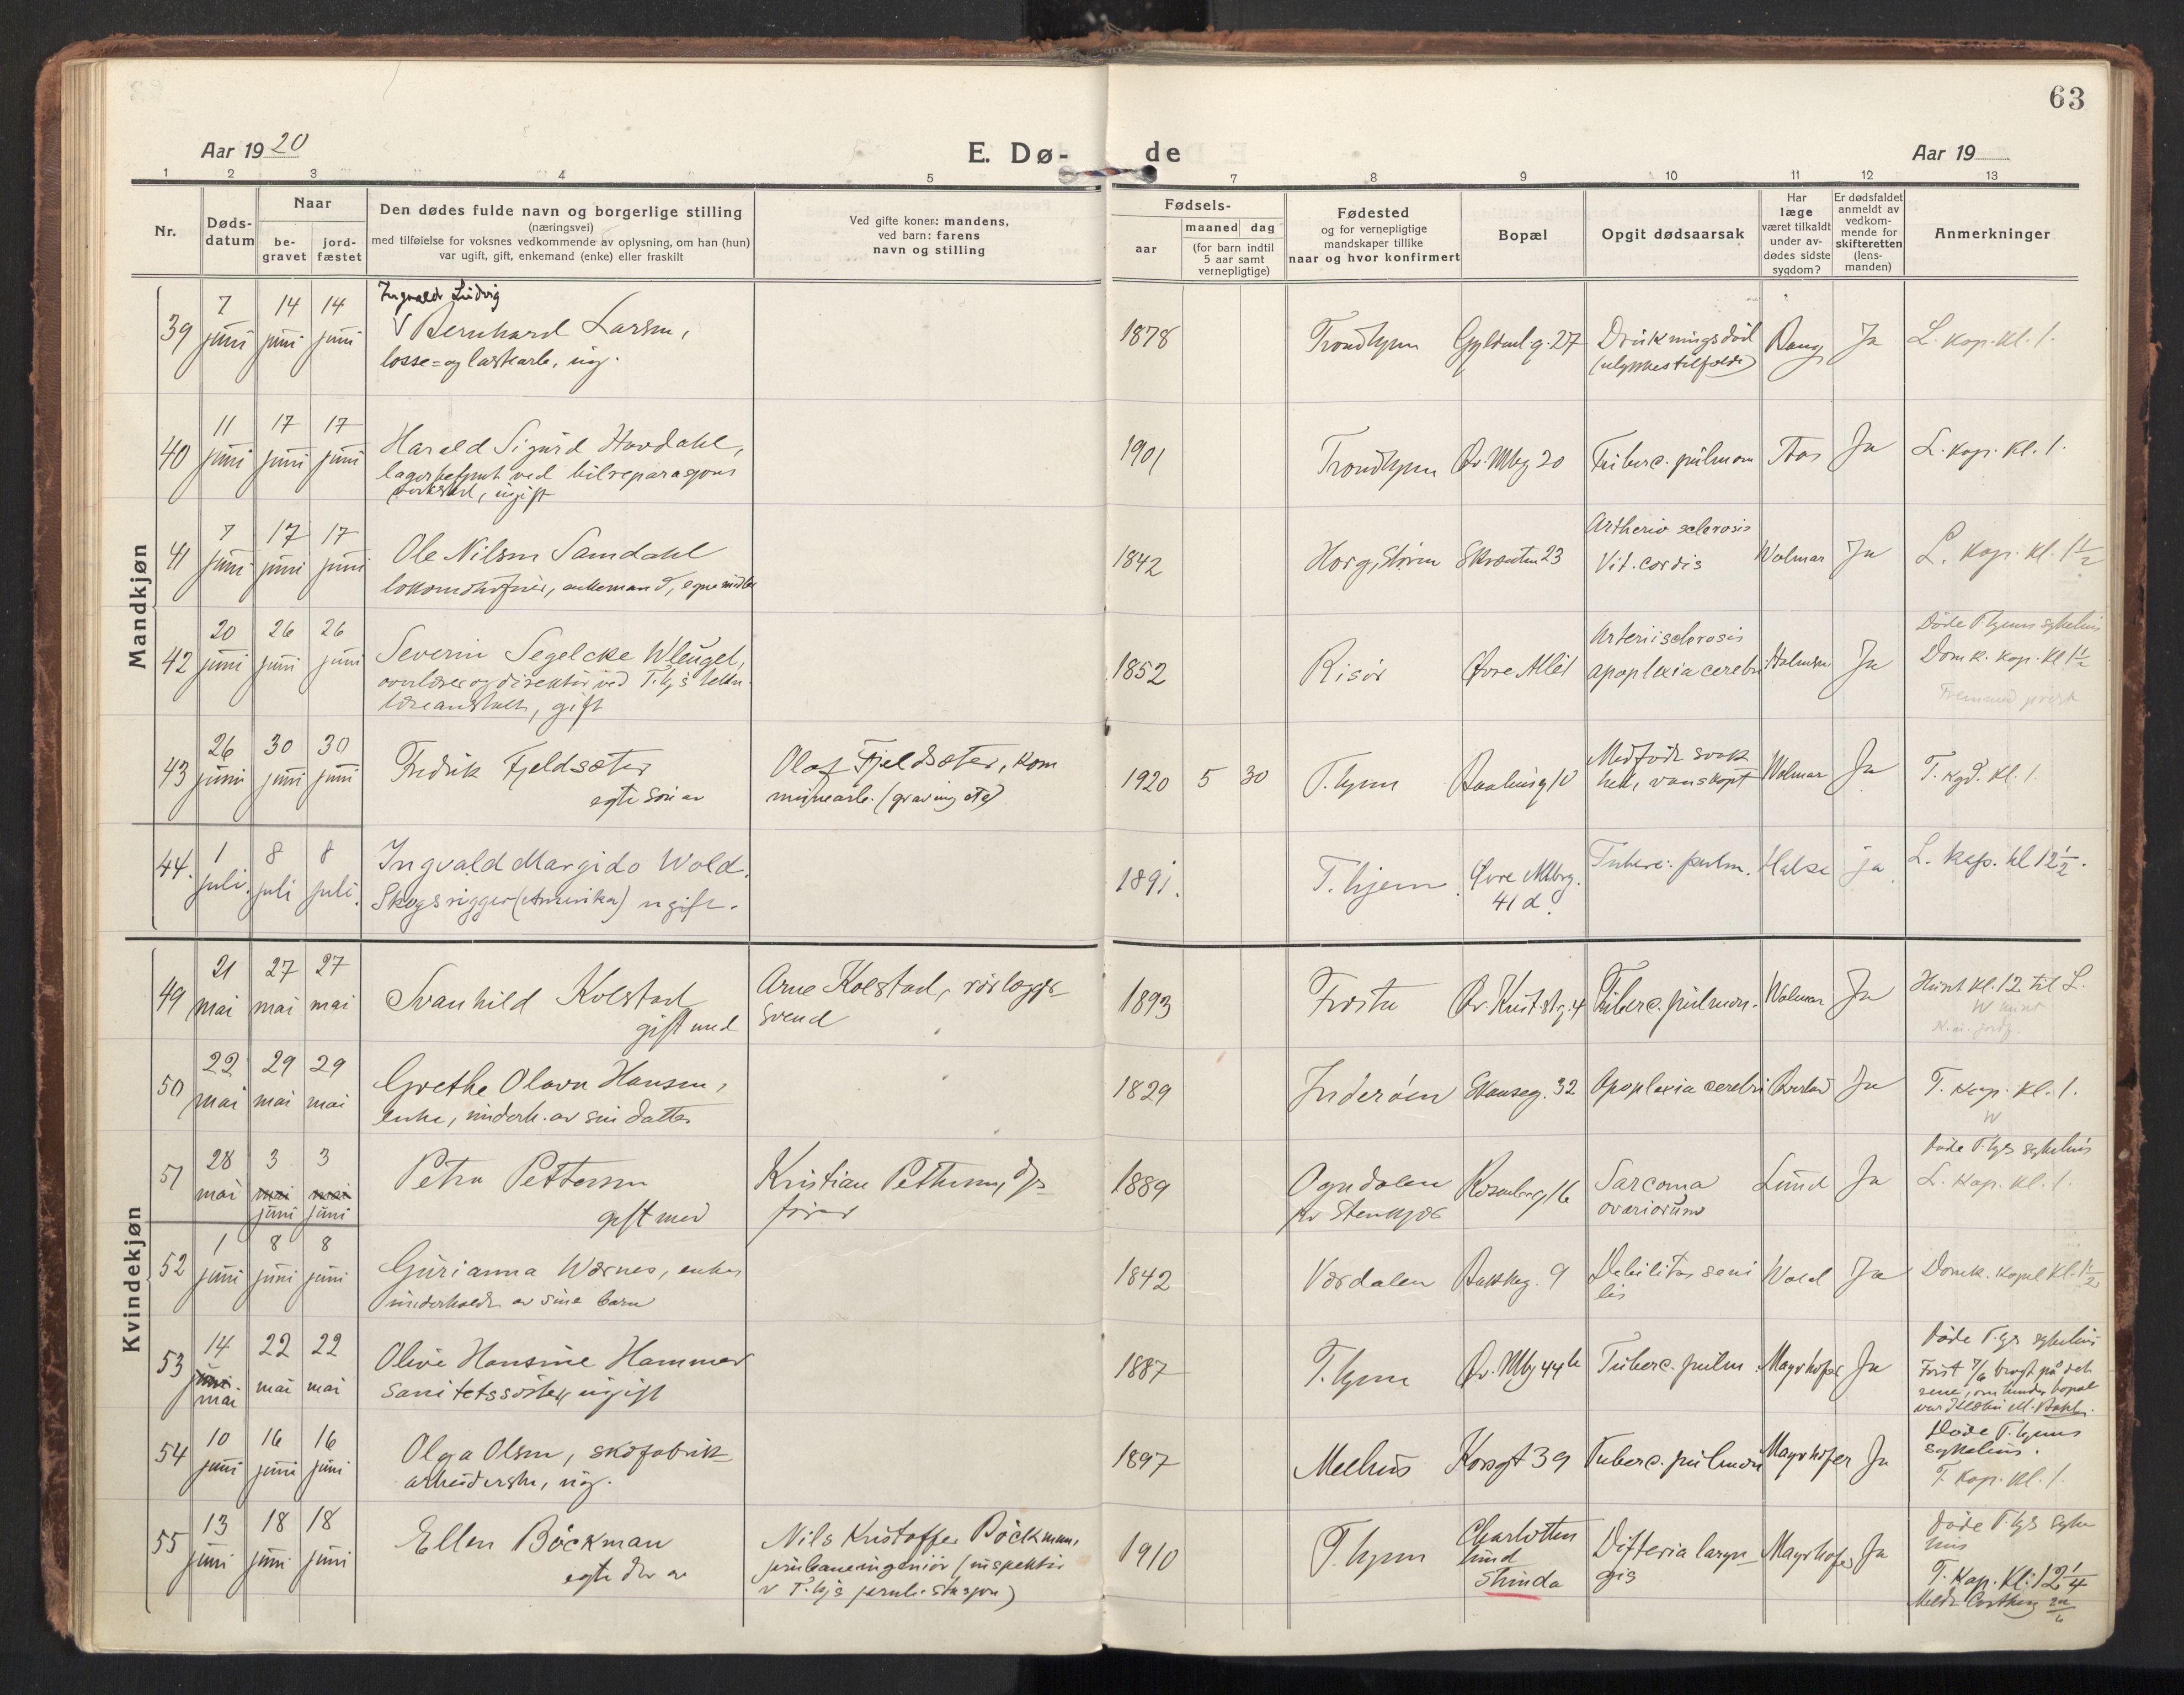 63
Aar 1920
E. Dø-
de
Aar 19
1 2 3 4 5 7 8 9 10 11 12 13
Nr.
Døds-
datum
Naar
be-
gravet
jord-
fæstet
Den dødes fulde navn og borgerlige stilling
(næringsvei)
med tilføielse for voksnes vedkommende av oplysning, om han (hun)
var ugift, gift, enkemand (enke) eller fraskilt
Ved gifte koner: mandens,
ved barn: farens
navn og stilling
Fødsels-
aar
maaned dag
(for barn indtil
5 aar samt
vernepligtige)
Fødested
og for vernepligtige
mandskaper tillike
naar og hvor konfirmert
Bopæl
Opgit dødsaarsak
Har
læge
været tilkaldt
under av-
dødes sidste
sygdom?
Er dødsfaldet
anmeldt av
vedkom-
mende for
skifteretten
(lens-
manden)
Anmerkninger
Mandkjøn
39 7 juni 14 juni 14 juni
Ingvald Ludvig
V Bernhard Larsen,
losse- og lastearb., ug.
1878 Trondhjem Gyldenl.g. 27 Drukningsdöd
(ulykkestilfælde)
Bang Ja L. kap. kl. 1.
40 11 juni 17 juni 17 juni
Harald Sigurd Havdahl,
lagerbetjent ved bilreparasjons
verksted, ugift
1901 Trondhjem Øv. Mbg 20 Tuberc. pulmon Aas Ja L. kap. kl. 1.
41 7 juni 17 juni 17 juni
Ole Nilsen Samdahl
lokomotivfører, enkemand, egne midler
1842 Horg, Støren Skraaten 23
Artherio sclerosis
Vit. cordis
Wolmar Ja L. kap. kl. 1 1/2
42 20 juni 26 juni 26 juni
Severin Segelcke Wleugel,
overlærer og direktör ved T.hjs tekn.
læreanstalt, gift
1852 Risör Øvre Allé 1
Arteriisclerosis
apoplexia cerebri
Holmsen Ja
Döde T.hjems sykehus
Domk. kap. kl 1 1/2
Fremmed prest
43 26 juni 30 juni 30 juni
Fredrik Fjeldsæter
egte sön av
Olaf Fjeldsæter, kom
munearb. (graving etc)
1920 5 30 T.hjem Bakhusg 10
Medfödt svak
het, vanskapt
Wolmar Ja T. kgd. kl. 1.
44. 1 juli. 8 juli 8 juli.
Ingvald Margido Wold.
Skogsrigger (Amerika) ugift.
1891. T.hjem. Øvre Mbrg.
41 d.
Tuberc. pulm. Halse ja. L. kap. kl 12 1/2.
Kvindekjøn
49 21 mai 27 mai 27 mai
Svanhild Kolstad
gift med
Arne Kolstad, rörlægger
svend
1893 Frosta Øv. Krist.st.g. 4 Tuberc. pulmon. Wolmar Ja
Huset kl. 12 til L.
50 22 mai 29 mai 29 mai
Grethe Olava Hansen,
enke, underh. av sin datter
1829 Inderöen Stanseg. 32 Apoplexia cerebri Ja T. kap. kl. 1.
W
51 28 mai 3 mai juni 3 mai juni
Petra Pettersen
gift med
Kristian Pettersen,
förer
1889 Ogndalen
pr Stenkjær
Rosenbg 16
Sarcoma
ovariorum
Lund Ja
Döde T.hjs sykehus
L. kap. kl. 1.
52 1 juni 8 juni 8 juni
Gurianna Wærnes, enke,
underholdt av sine barn
1842 Værdalen Bakkeg. 9
Debilitas seni
lis
Wold Ja Domk. kapel kl. 1 1/2
53 14 juni mai 22 mai 22 mai
Olive Hansine Hammer
sanitetssöster, ugift
1887 T.hjem Øv. Mbg 44 b Tuberc. pulm. Mayrhofer Ja
Döde T.hjs sykehus
Först 7/6 bragt på det
rene, om hendes bopæl
54 10 juni 16 juni 16 juni
Olga Olsen, skofabrik
arbeiderske, ug.
1897 Meelhus Korsgt 39 Tuberc. pulmon Mayrhofer Ja
Döde T.hjems
sykehus.
T. kap. kl. 1.
55 13 juni 18 juni 18 juni
Ellen Böckman
egte dtr av
Nils Kristoffer Böckman,
jernbaneingeniör (inspektör
v T.hjs jernb. stasjon)
1910 T.hjem
Charlotten
lund
Strinda
Difteria laryn
gis
Mayrhofer Ja
Döde T.hjs syke
hus
T. kap. kl. 12 1/4